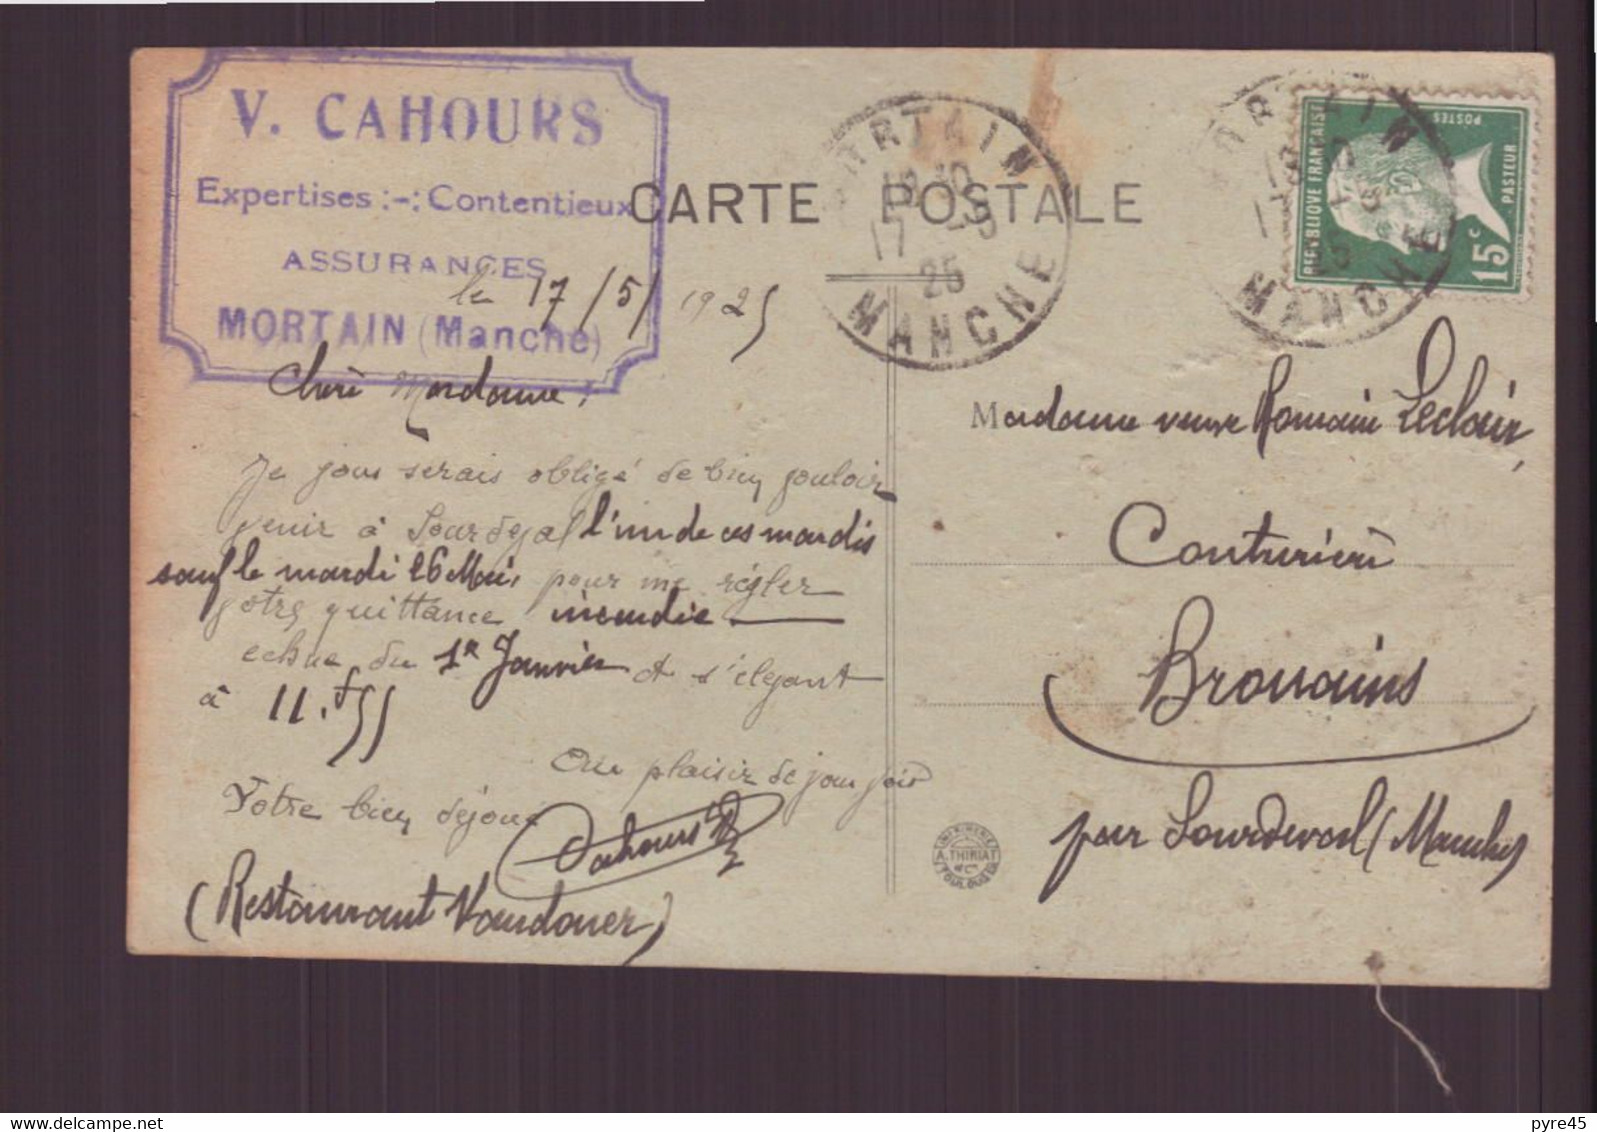 V. CAHOURS
Expertises :-: Contentieux
ASSURANCES
MORTAIN (Manche)
le 17/5/1925
CARTE POSTALE
MORTAIN
17 -5
25
MANCHE
REPUBLIQUE FRANÇAISE
POSTES
PASTEUR
15c
Chère Madame!
Je vous serais obligé de bien vouloir
venir à Sourdeval l'un de ces mardis
sauf le mardi 26 Mai, pour me régler
votre quittance incendie
echue du 1er Janvier et s'élevant
à 11.f55
Au plaisir de vous voir
Votre bien dévoué
Cahours
(Restaurant Vaudouer)
Madame veuve Romain Leclair,
Couturière
Brouains
par Sourdeval (Manche)
IMPRIMERIE
A. THIRIAT
& Cie
TOULOUSE
pyre45